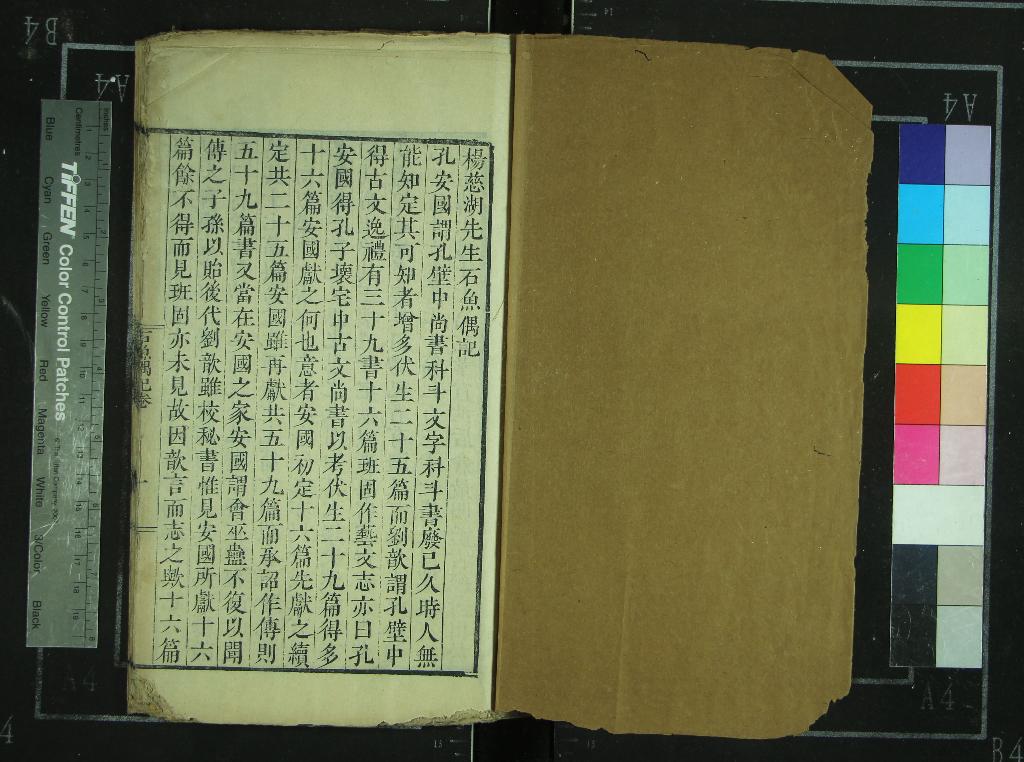 楊慈湖先生石魚偶記
孔安國謂孔壁中尚書科斗文字科斗書廢已久時人無
能知定其可知者增多伏生二十五篇而劉歆謂孔壁中
得古文逸禮有三十九書十六篇班固作藝文志亦曰孔
安國得孔子壞宅中古文尚書以考伏生二十九篇得多
十六篇安國獻之何也意者安國初定十六篇先獻之續
定共二十五篇安國雖再獻共五十九篇而承詔作傳則
五十九篇書又當在安國之家安國謂會巫蠱不復以聞
傳之子孫以貽後代劉歆雖校秘書惟見安國所獻十六
篇餘不得而見班固亦未見故因歆言而志之歟十六篇
石魚偶記卷
一
TIFFEN Color Control Patches
Centimetres
Inches
Blue
Cyan
Green
Yellow
Red
Magenta
White
3/Color
Black
B4
A4
A4
A4
A4
B4